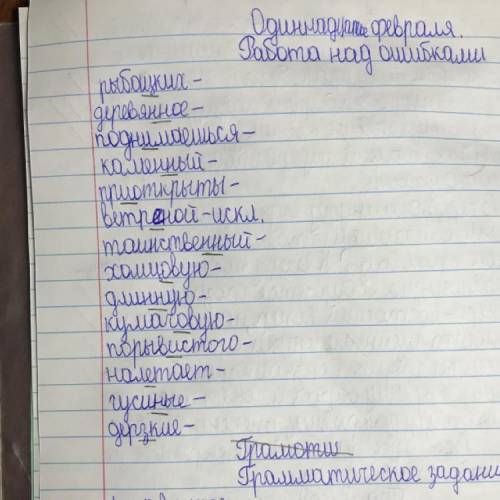 Одиннадцатое февраля.
Работа над ошибками
рыбацких-
деревянное-
поднимаешься-
каменный-
приоткрыты-
ветреной-искл.
таинственный-
холщовую-
длинную-
кумачовую-
порывистого-
налетает-
гусиные-
дерзкие-
Грамотии
Грамматическое задани